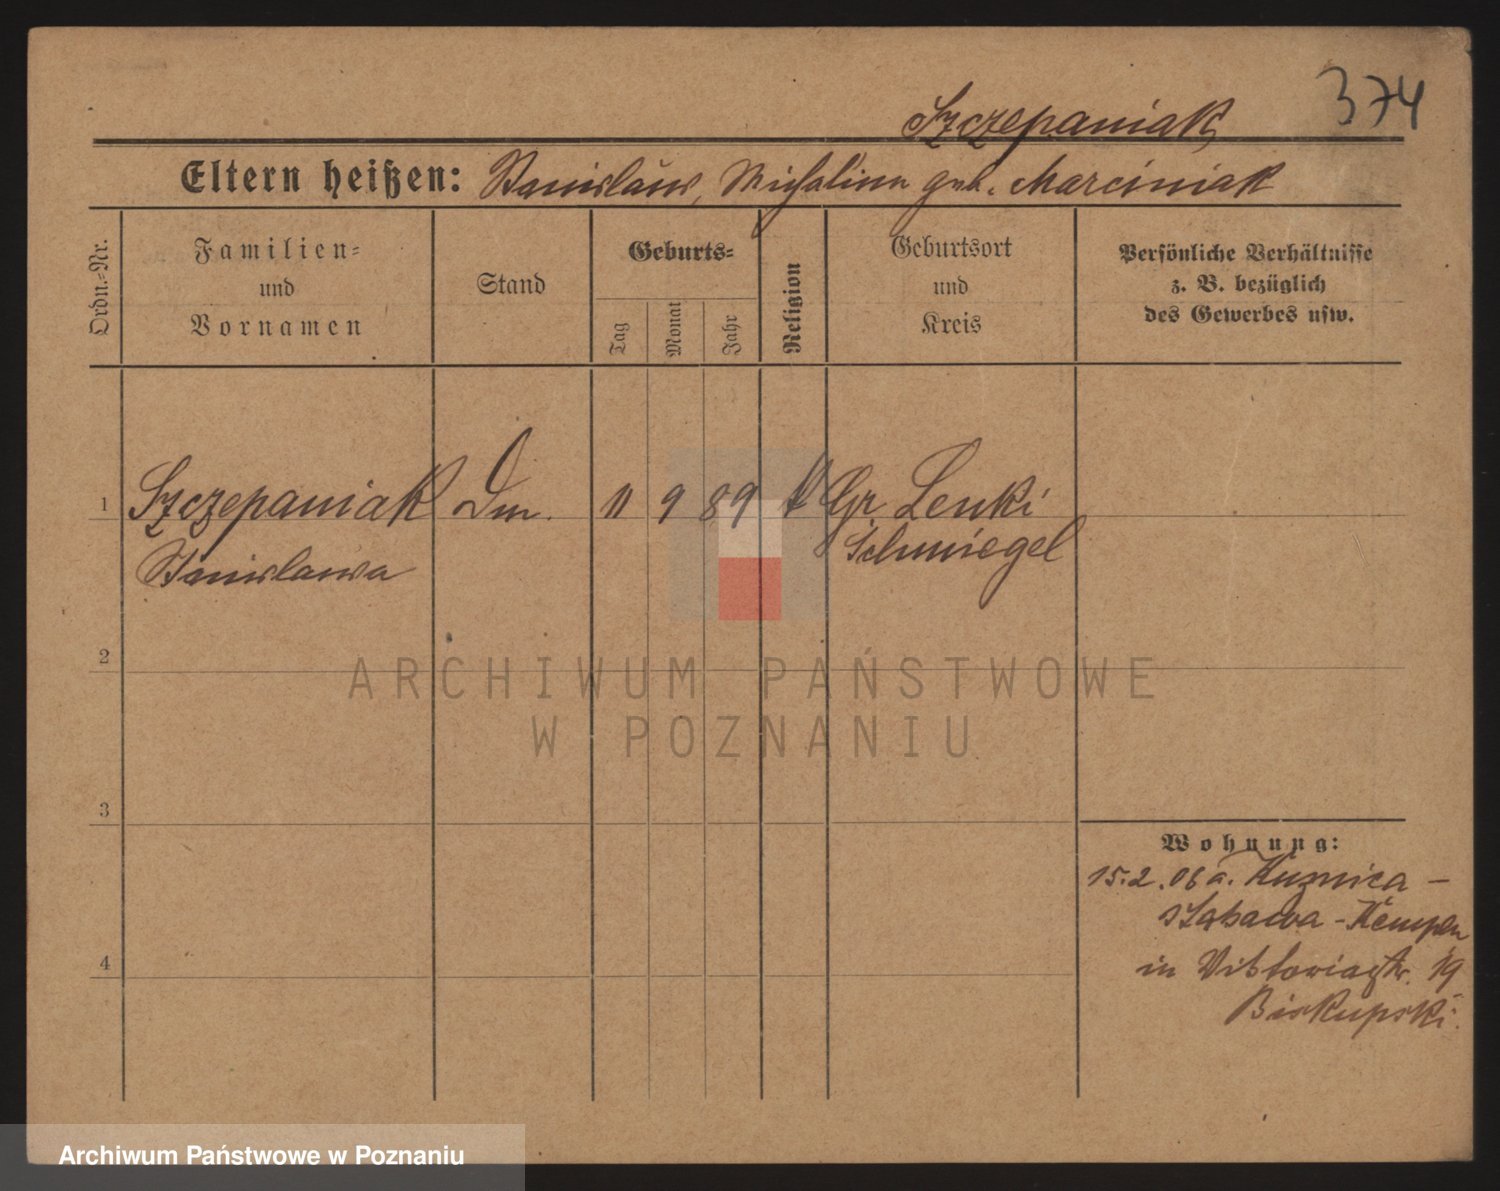 374
Szczepaniak
Eltern heißen: Stanislaus, Michalina geb. Marciniak
Ordn.-Nr.
Familien-
und
Vornamen
Stand
Geburts-
Tag
Monat
Jahr
Religion
Geburtsort
und
Kreis
Persönliche Verhältnisse
z. B. bezüglich
des Gewerbes usw.
1 Szczepaniak Dm. 11 9 89 k Gr Lenki
Stanislawa Schmiegel
2
3
4
Wohnung:
15.2.06 a. Kuznica -
- Kempen
in Viktoriastr. 19
Biskupski.
ARCHIWUM PAŃSTWOWE
W POZNANIU
Archiwum Państwowe w Poznaniu